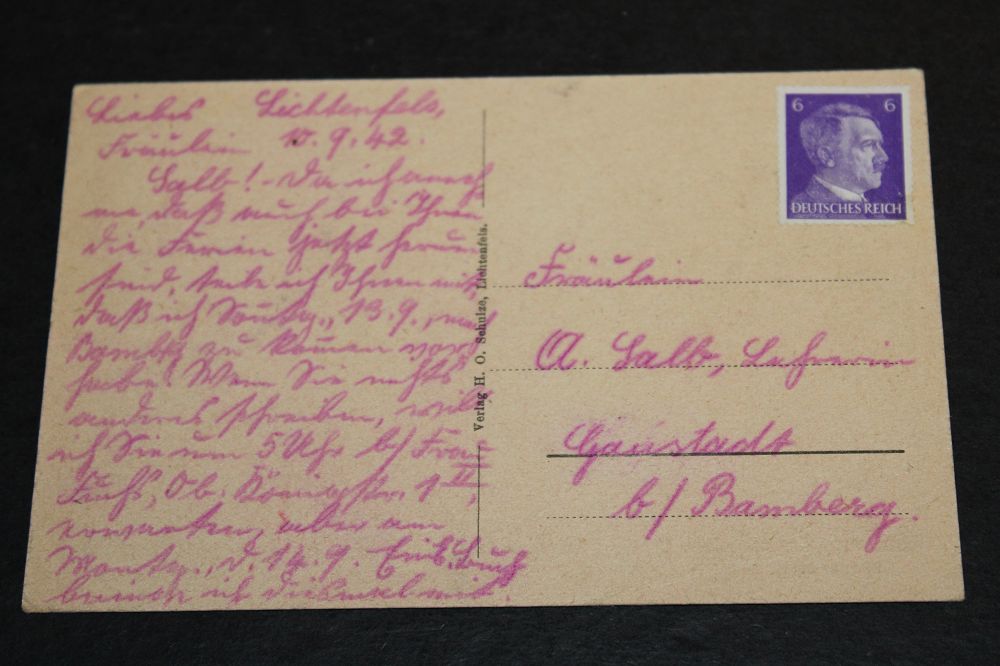 Liebes Lichtenfels,
Fräulein 10.9.42.
Salb! - Da ich anneh
me, daß auch bei Ihnen
die Ferien jetzt herum
sind, teile ich Ihnen mit,
daß ich Sonntg., 13.9., nach
Bambg zu kommen vor
habe! Wenn Sie nichts
anderes schreiben, will
ich Sie um 5 Uhr b/ Frau
Fuchs, Ob. Königstr. 1 II,
erwarten, aber am
Montg., d. 14.9.
bringe ich diesmal mit.
Verlag H. O. Schulze, Lichtenfels.
6 6
DEUTSCHES REICH
Fräulein
A. Salb, Lehrerin
Gaustadt
b/ Bamberg.